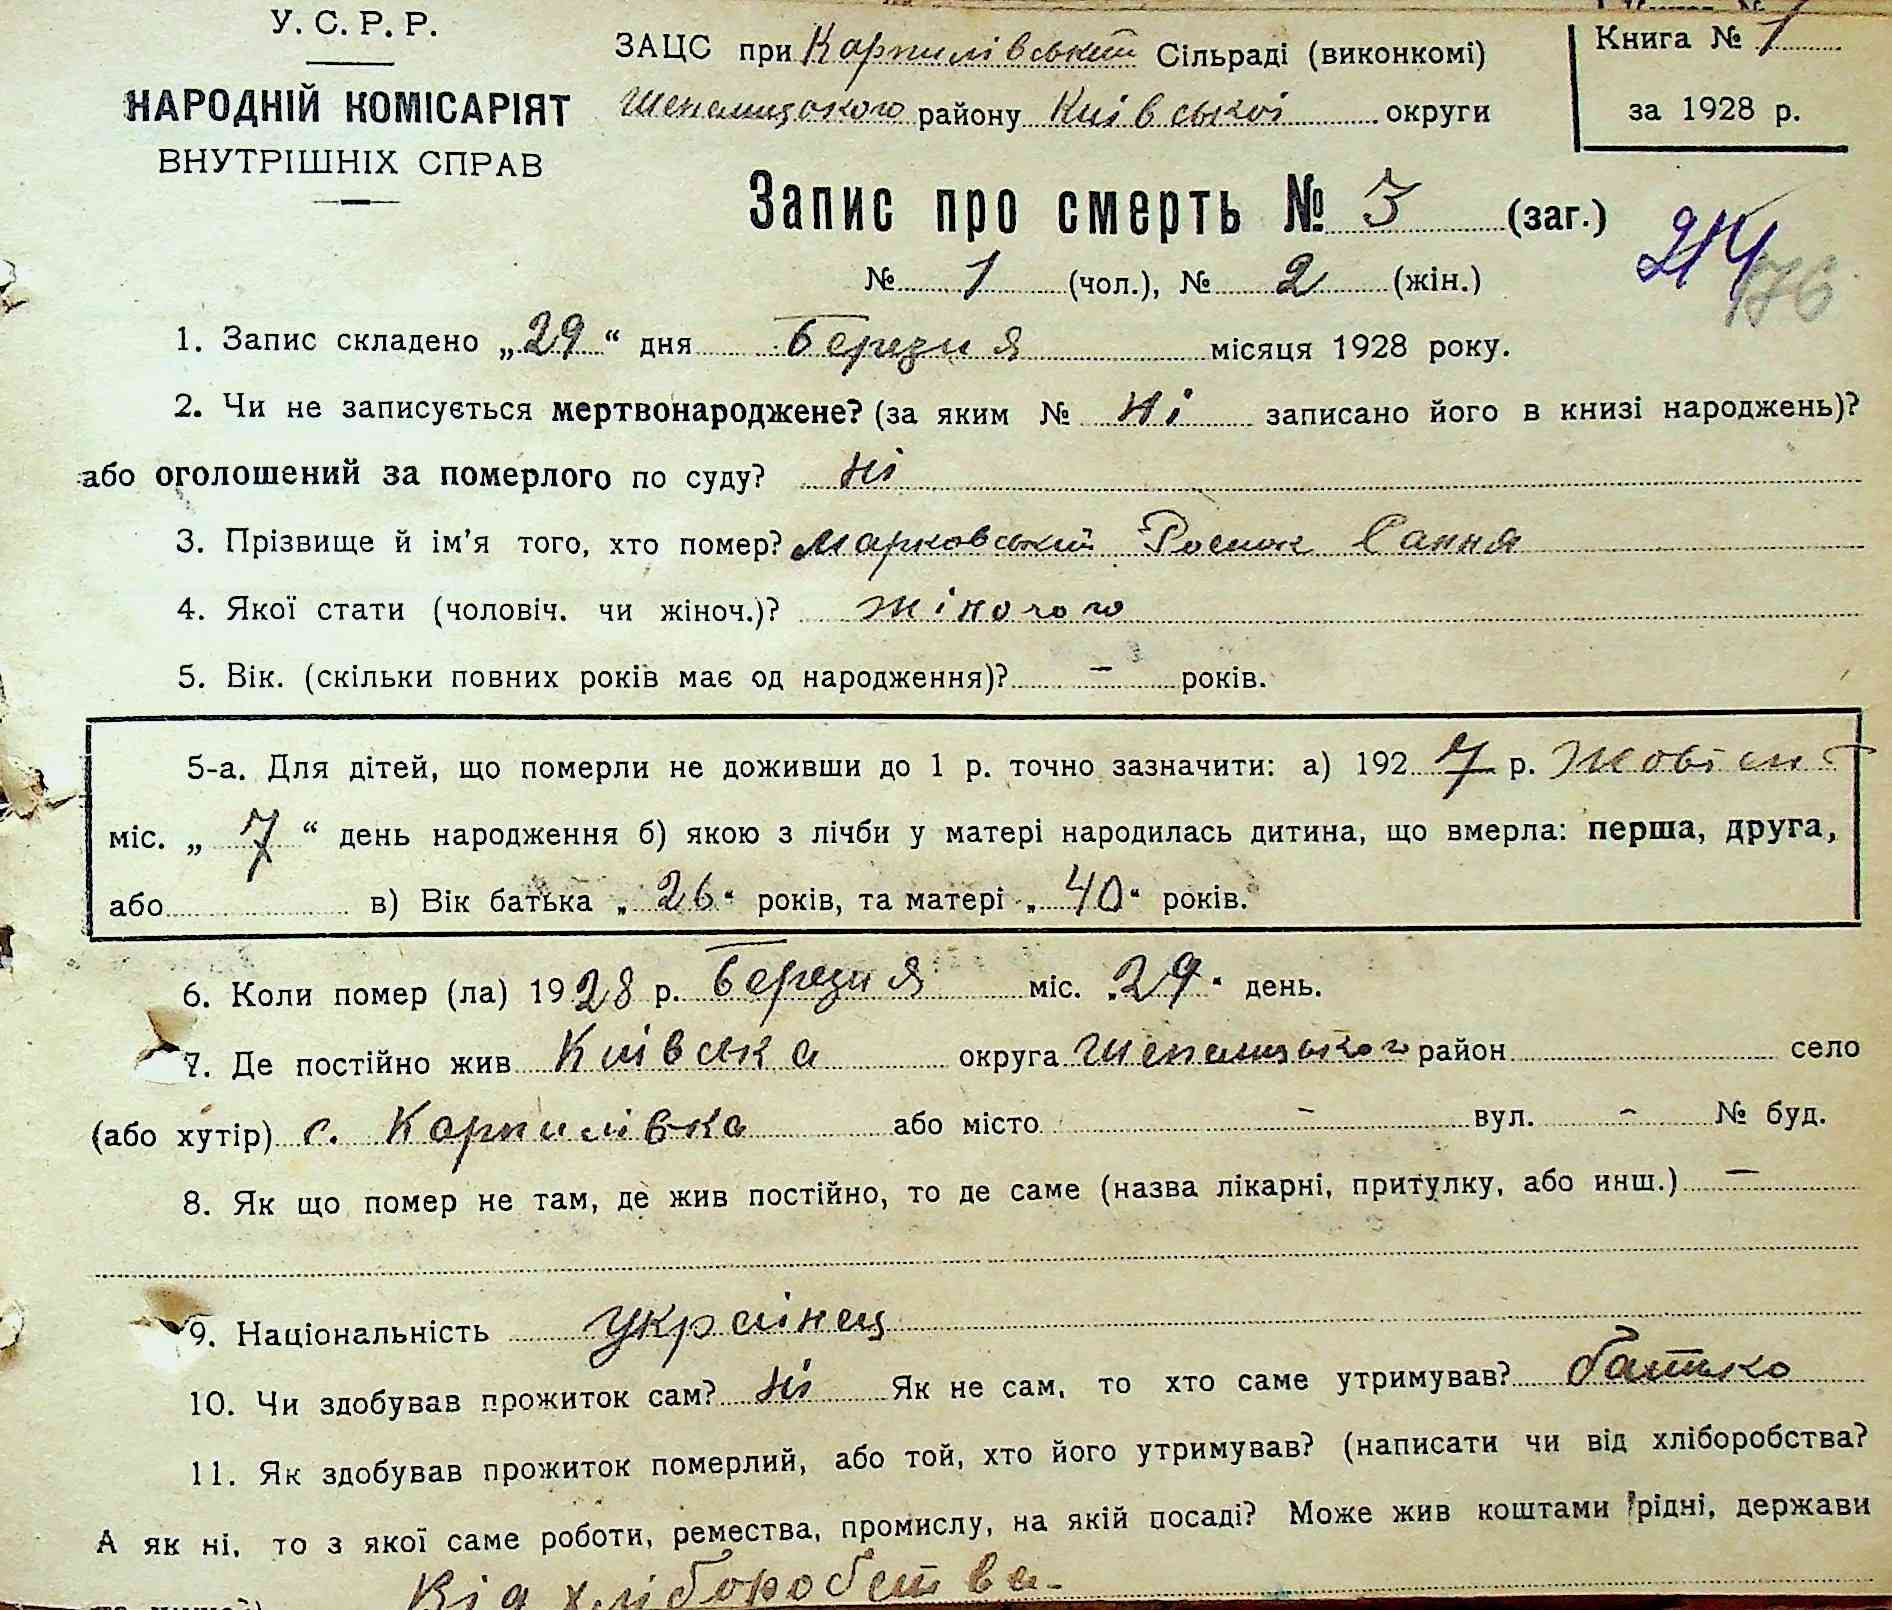 У. С. Р. Р.
НАРОДНІЙ КОМІСАРІЯТ
ВНУТРІШНІХ СПРАВ
ЗАЦС при Карпилівський Сільраді (виконкомі)
Шепелицького району Київської округи
Книга № 1
за 1928 р.
Запис про смерть № 3 (заг.)
214
176
№ 1 (чол.), № 2 (жін.)
1. Запис складено „29“ дня Березня місяця 1928 року.
2. Чи не записується мертвонароджене? (за яким № ні записано його в книзі народжень)?
або оголошений за померлого по суду? ні
3. Прізвище й ім'я того, хто помер? Марковський
4. Якої стати (чоловіч. чи жіноч.)? жіночого
5. Вік. (скільки повних років має од народження)? – років.
5-а. Для дітей, що померли не доживши до 1 р. точно зазначити: а) 1927 р.
міс. „7“ день народження б) якою з лічби у матері народилась дитина, що вмерла: перша, друга,
або в) Вік батька „26“ років, та матері „40“ років.
6. Коли помер (ла) 1928 р. Березня міс. „29“ день.
7. Де постійно жив Київська округа Шепелицького район село
(або хутір) с. Карпилівка або місто – вул. – № буд.
8. Як що помер не там, де жив постійно, то де саме (назва лікарні, притулку, або инш.) –
9. Національність Українец
10. Чи здобував прожиток сам? ні Як не сам, то хто саме утримував? батько
11. Як здобував прожиток померлий, або той, хто його утримував? (написати чи від хліборобства?
А як ні, то з якої саме роботи, ремества, промислу, на якій посаді? Може жив коштами рідні, держави
Від хліборобства